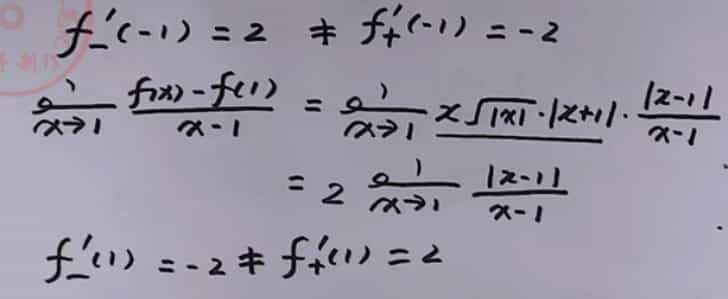 f₋'(-1) = 2 ≠ f₊'(-1) = -2
lim x→1 (f(x) - f(1))/(x-1) = lim x→1 x√|x| · |x+1| · |x-1|/(x-1)
= 2 lim x→1 |x-1|/(x-1)
f₋'(1) = -2 ≠ f₊'(1) = 2